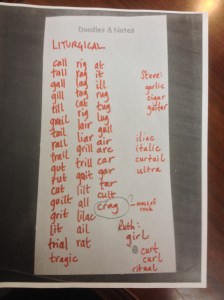 Doodles & Notes
LITURGICAL
call rig at
tall rag it
gall lag ill
gill tag rug
till cat tug
grail rig lug
tail lair gull
rail liar air
trail grill arc
gut trill car
gait gar
cut lilt tar
guilt all cult
grit lilac crag
lit ail
trial rat
tragic
Steve:
garlic
cigar
gutter
iliac
italic
curtail
ultra
mass of
rock
Ruth:
girl
curt
curl
ritual